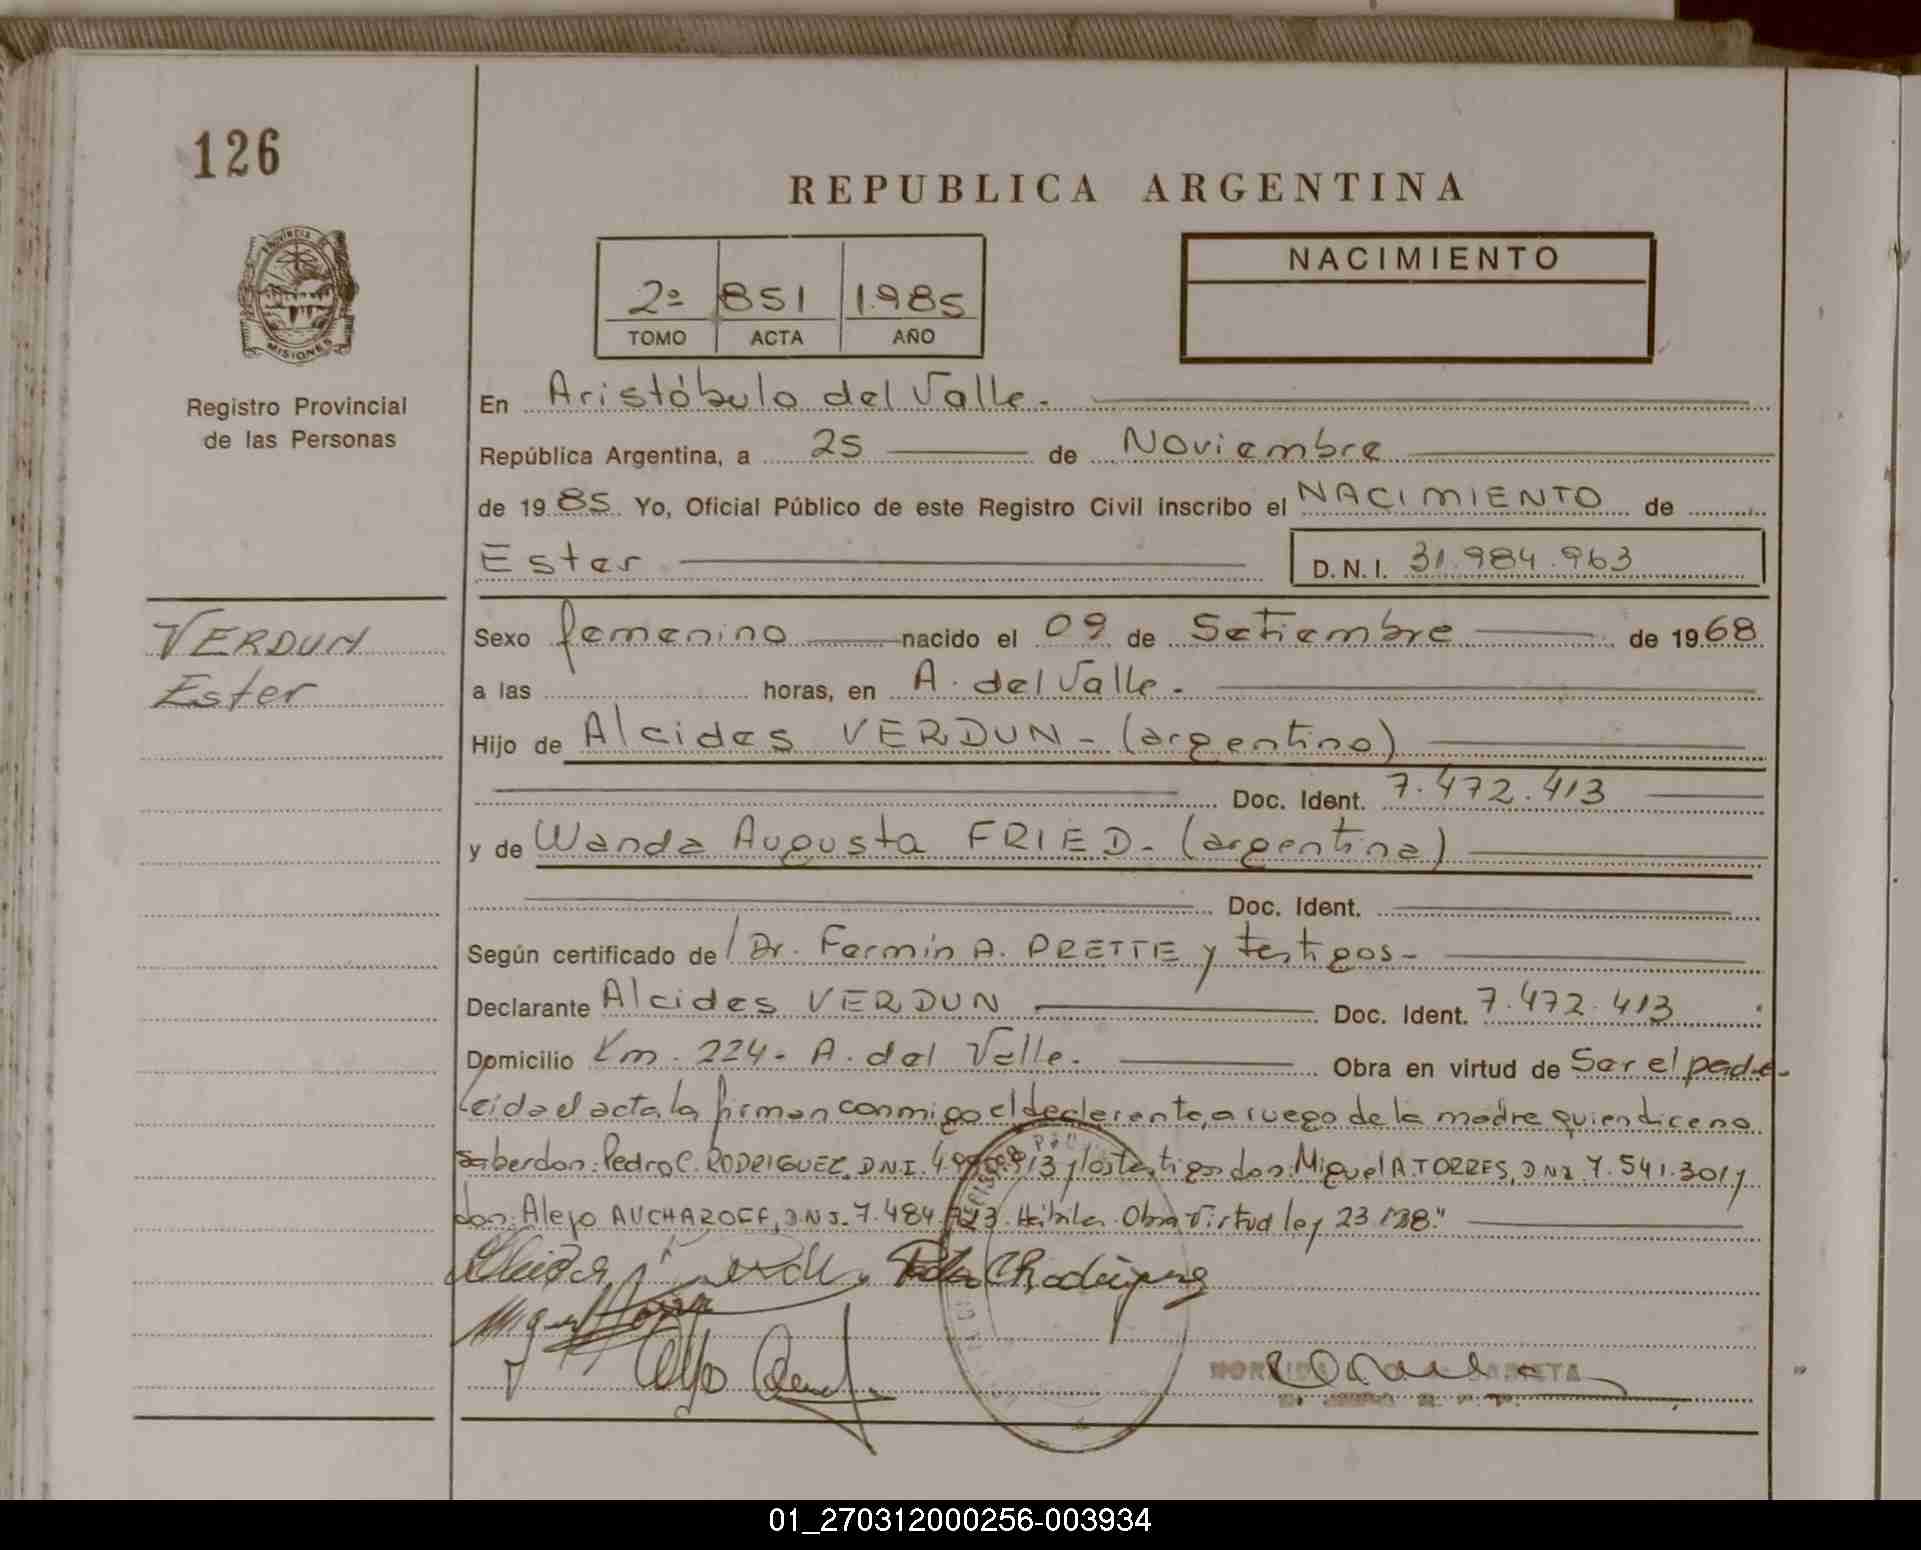 126
REPUBLICA ARGENTINA
PROVINCIA DE
MISIONES
2º 851 1.985
TOMO ACTA AÑO
NACIMIENTO
Registro Provincial
de las Personas
En Aristóbulo del Valle.
República Argentina, a 25 de Noviembre
de 1985. Yo, Oficial Público de este Registro Civil inscribo el NACIMIENTO de
Ester D.N.I. 31.984.963
VERDUN
Ester
Sexo femenino nacido el 09 de Setiembre de 1968
a las horas, en A. del Valle.
Hijo de Alcides VERDUN - (argentino)
Doc. Ident. 7.472.413
y de Wanda Augusta FRIED - (argentina)
Doc. Ident.
Según certificado de Dr. Fermín A. PRETTE y testigos -
Declarante Alcides VERDUN Doc. Ident. 7.472.413
Domicilio Km. 224 - A. del Valle. Obra en virtud de Ser el padre-
Leida el acta la firman conmigo el declarante, a ruego de la madre quien dice no
saber don: Pedro C. RODRIGUEZ, D.N.I. y los testigos don: Miguel A. TORRES, D.N.I. 7.541.301 y
don: Alejo AUCHAROFF, D.N.I. 7.484. Hábiles. Obra Virtud ley 23.128."
01_270312000256-003934